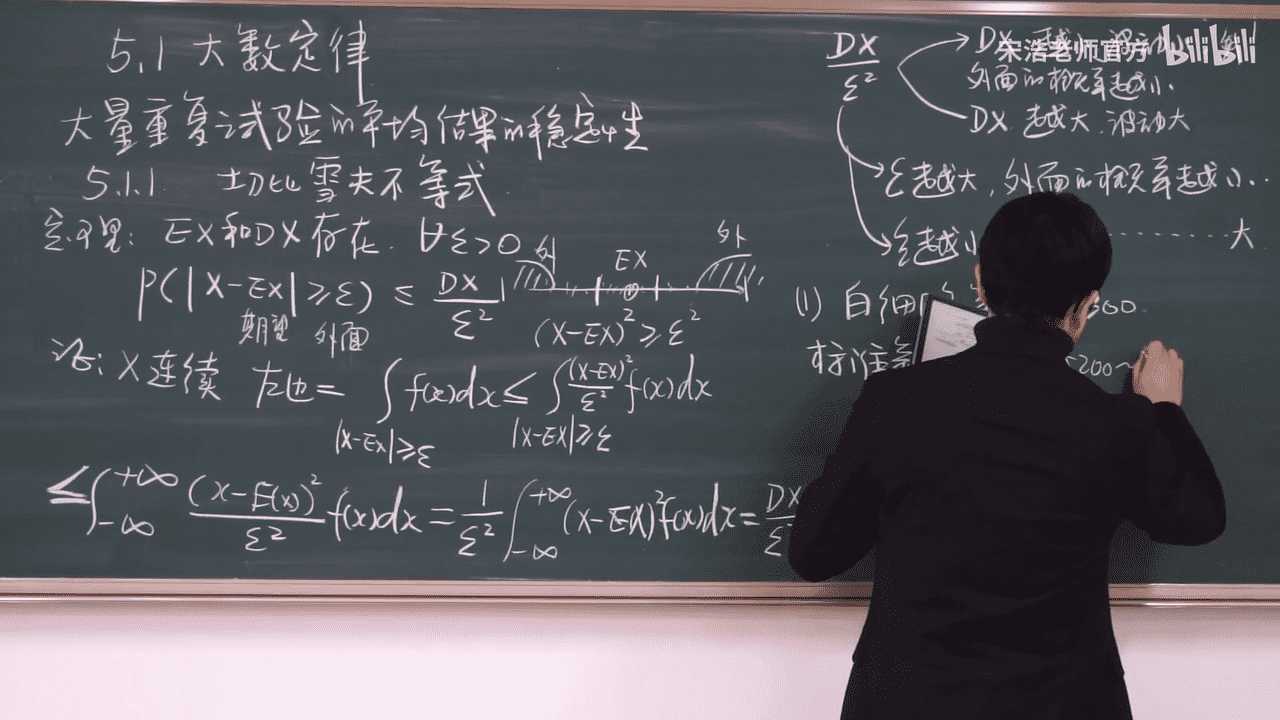 5.1 大数定律
大量重复试验的平均结果的稳定性
5.1.1 切比雪夫不等式
定理: EX和DX存在. ∀ε>0
P(|X-EX|≥ε) ≤ DX/ε²
期望 外面
外 EX 外
(X-EX)²≥ε²
证: X连续 左边= ∫f(x)dx ≤ ∫(X-EX)²/ε² f(x)dx
|X-EX|≥ε |X-EX|≥ε
≤∫_{-∞}^{+∞} (x-E(x))²/ε² f(x)dx = 1/ε² ∫_{-∞}^{+∞} (x-EX)²f(x)dx = DX/ε
DX/ε²
DX
外面的概率越小.
DX 越大, 波动大
ε越大, 外面的概率越小..
ε越小 ········ 大
(1) 白细
标准
5200~
宋浩老师官方 bilibili